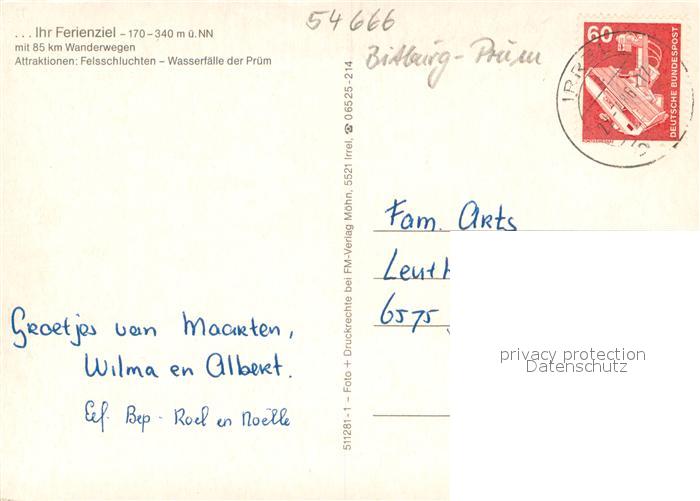 ... Ihr Ferienziel – 170 – 340 m ü. NN
mit 85 km Wanderwegen
Attraktionen: Felsschluchten – Wasserfälle der Prüm
54666
Bitburg - Prüm
60
DEUTSCHE BUNDESPOST
511281-1 – Foto + Druckrechte bei FM-Verlag Möhn, 5521 Irrel, ☎ 0 65 25 - 214
Fam. Arts
6575
Groetjes van Maarten,
Wilma en Albert.
Eef. Bep - Roel en Noëlle
privacy protection
Datenschutz